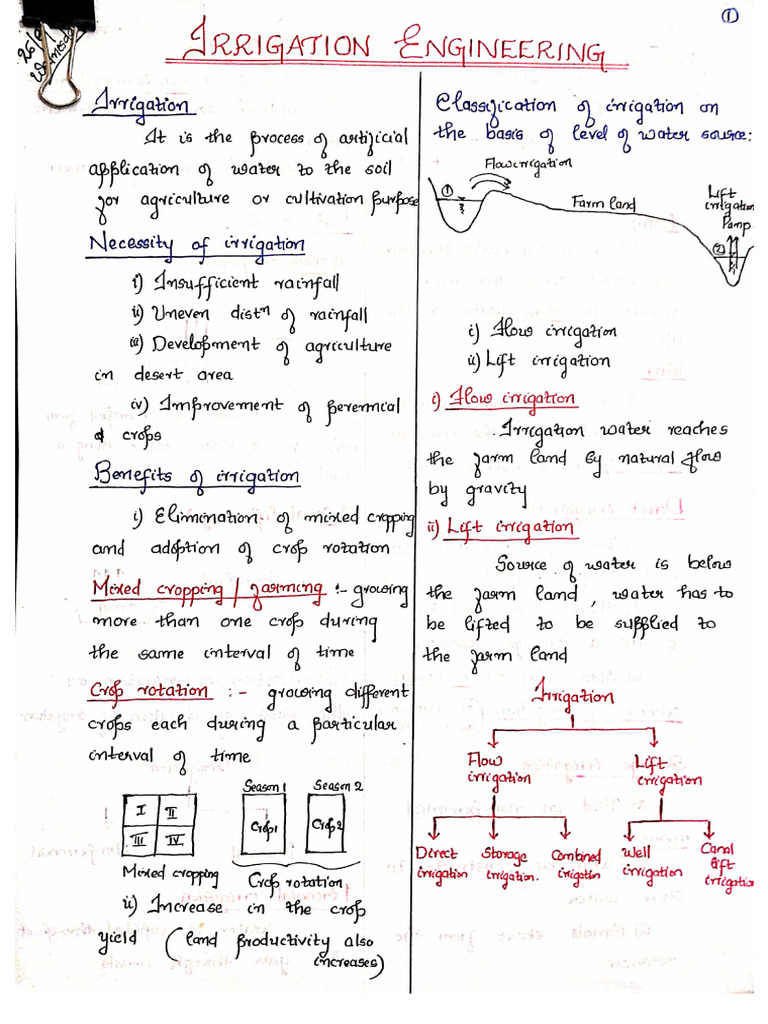 ①
IRRIGATION ENGINEERING
Irrigation
It is the process of artificial
application of water to the soil
for agriculture or cultivation purpose
Necessity of irrigation
i) Insufficient rainfall
ii) Uneven distⁿ of rainfall
iii) Development of agriculture
in desert area
iv) Improvement of perennial
crops
Benefits of irrigation
i) Elimination of mixed cropping
and adoption of crop rotation
Mixed cropping / farming :- growing
more than one crop during
the same interval of time
Crop rotation :- growing different
crops each during a particular
interval of time
Season 1 Season 2
I II
III IV
Crop 1 Crop 2
Mixed cropping
Crop rotation
ii) Increase in the crop
yield (land productivity also
increases)
Classification of irrigation on
the basis of level of water source:
Flow irrigation
①
Farm land
Lift
irrigation
Pump
②
i) Flow irrigation
ii) Lift irrigation
i) Flow irrigation
Irrigation water reaches
the farm land by natural flow
by gravity
ii) Lift irrigation
Source of water is below
the farm land, water has to
be lifted to be supplied to
the farm land
Irrigation
Flow
irrigation
Lift
irrigation
Direct
irrigation
Storage
irrigation.
Combined
irrigation
Well
irrigation
Canal
lift
irrigation